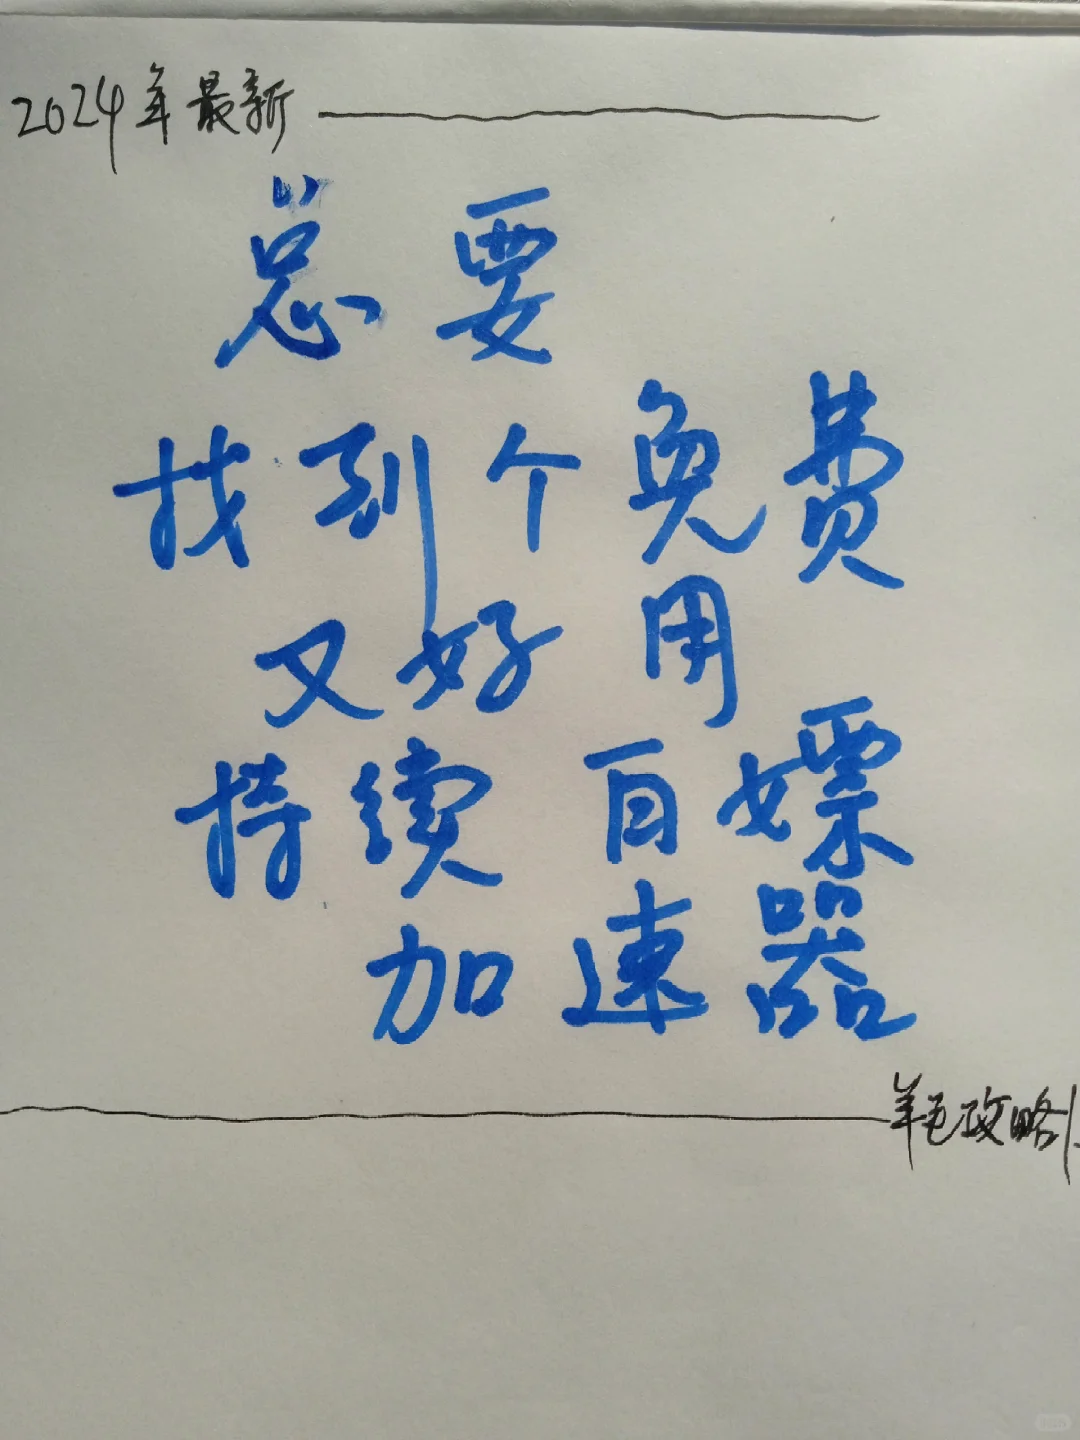 2024年最新
总要
找到个免费
又好用
持续百嫖
加速器
羊毛攻略!